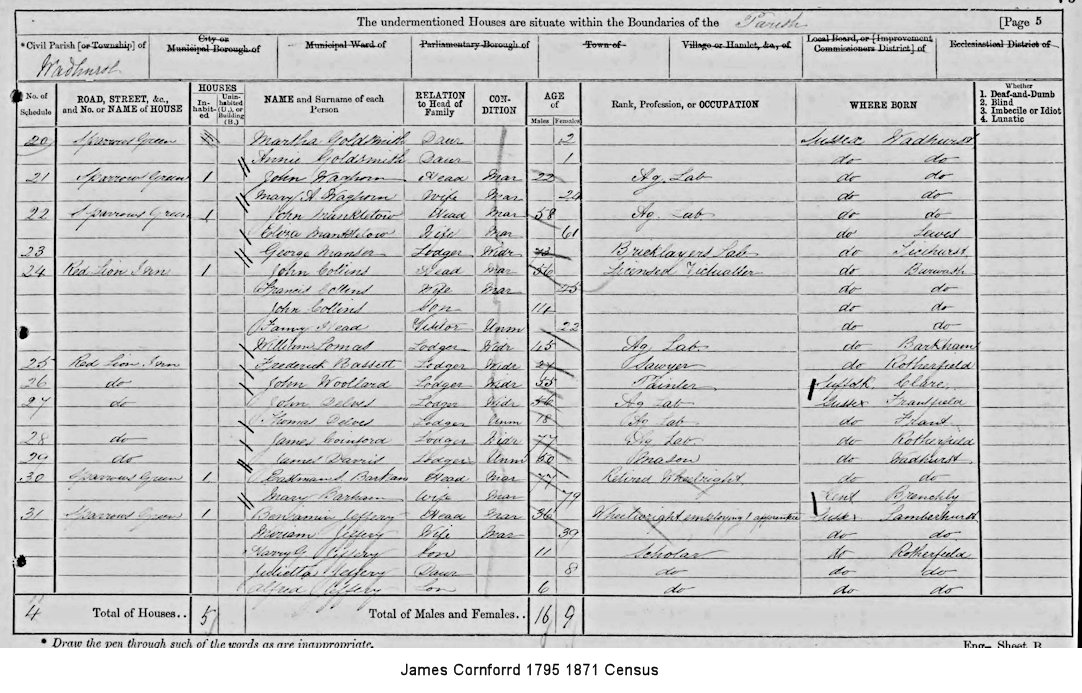 The undermentioned Houses are situate within the Boundaries of the Parish [Page 5
*Civil Parish [or Township] of City or Municipal Borough of Municipal Ward of Parliamentary Borough of Town of Village or Hamlet, &c., of Local Board, or [Improvement Commissioners District] of Ecclesiastical District of
Wadhurst
No. of Schedule ROAD, STREET, &c., and No. or NAME of HOUSE HOUSES In-habit-ed Unin-habited (U.), or Building (B.) NAME and Surname of each Person RELATION to Head of Family CON-DITION AGE of Males Females Rank, Profession, or OCCUPATION WHERE BORN Whether 1. Deaf-and-Dumb 2. Blind 3. Imbecile or Idiot 4. Lunatic
20 Sparrows Green Martha Goldsmith Daur 2 Sussex Wadhurst
Annie Goldsmith Daur 1 do do
21 Sparrows Green 1 John Waghorn Head Mar 22 Ag. Lab do do
Mary A Waghorn Wife Mar 24 do do
22 Sparrows Green 1 John Mankletow Head Mar 58 Ag. Lab do do
Wife Mar 61 do Lewes
23 George Manser Lodger Widr Bricklayers Lab do Ticehurst
24 Red Lion Inn 1 John Collins Head Mar 56 Licensed Victualler do Burwash
Francis Collens Wife Mar 45 do do
John Collins Son 14 do do
Fanny Head Visitor Unm 22 do do
William Lodger Widr 45 Ag. Lab do Barkham
25 Red Lion Inn Frederick Bassett Lodger Widr Sawyer do Rotherfield
26 do John Woollard Lodger Widr 55 Painter Suffolk Clare
27 do John Delves Lodger Widr Ag Lab Sussex Framfield
Thomas Delves Lodger Unm 18 Ag Lab do Frant
28 do James Coinford Lodger Widr 77 Ag Lab do Rotherfield
29 do James Davis Lodger Unm 50 Mason do Wadhurst
30 Sparrows Green 1 Barham Head Mar 77 Retired Wheelwright do do
Mary Barham Wife Mar 79 Kent Brenchly
31 Sparrows Green Benjamin Jeffery Head Mar 36 Wheelwright employing 1 apprentice Sussex Lamberhurst
Miriam Jeffery Wife Mar 39 do do
Harry G Jeffery Son 11 Scholar do Rotherfield
Julietta Jeffery Daur 8 do do do
Alfred Jeffery Son 6 do do do
4 Total of Houses.. 5 Total of Males and Females.. 16 9
* Draw the pen through such of the words as are inappropriate. Eng.— Sheet B.
James Cornforrd 1795 1871 Census